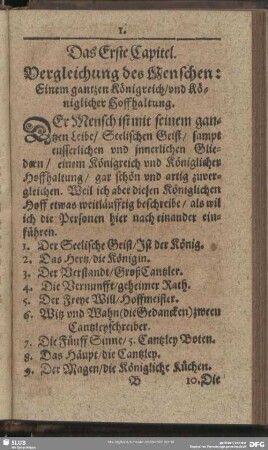 1.
Das Erste Capitel.
Vergleichung des Menschen:
Einem gantzen Königreich/vnd Kö-
niglicher Hoffhaltung.
DEr Mensch ist mit seinem gan-
tzen Leibe/ Seelischen Geist/ sampt
eusserlichen vnd innerlichen Glie-
dern/ einem Königreich vnd Königlicher
Hoffhaltung/ gar schön vnd artig zuver-
gleichen. Weil ich aber diesen Königlichen
Hoff etwas weitläufftig beschreibe/ als wil
ich die Personen hier nach einander ein-
führen.
1. Der Seelische Geist/Ist der König.
2. Das Hertz/die Königin.
3. Der Verstandt/GroßCantzler.
4. Die Vernunfft/geheimer Rath.
5. Der Freye Will/Hoffmeister.
6. Witz vnd Wahn(die Gedancken)zween
Cantzleyschreiber.
7. Die Fünff Sinne/5. Cantzley Boten.
8. Das Häupt/die Cantzley.
9. Der Magen/die Königliche Küchen.
B 10. Die
SLUB